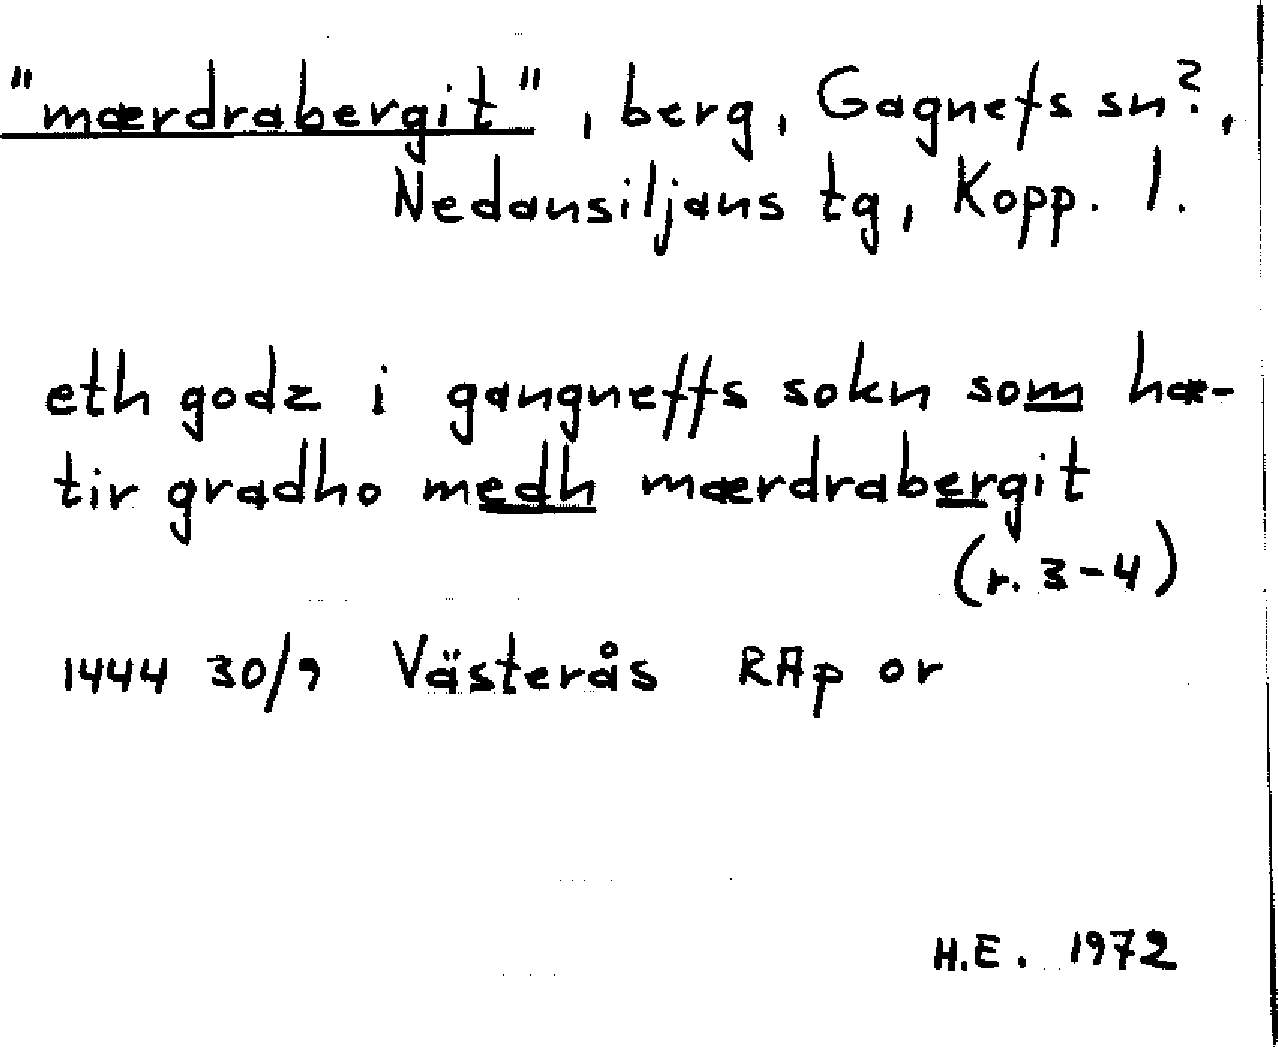 "mærdrabergit", berg, Gagnefs sn?,
Nedansiljans tg, Kopp. l.
eth godz i gangneffs sokn som hæ-
tir gradho medh mærdrabergit
(r. 3-4)
1444 30/9 Västerås RAp or
H.E. 1972